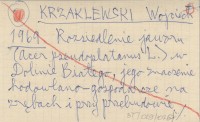 KRZAKLEWSKI Wojciech
1969 Rozsiedlenie jaworu
(Acer pseudoplatanus L.) w
Dolinie Białego, jego znaczenie
hodowlano-gospodarcze na
zrębach i przy przebudowie